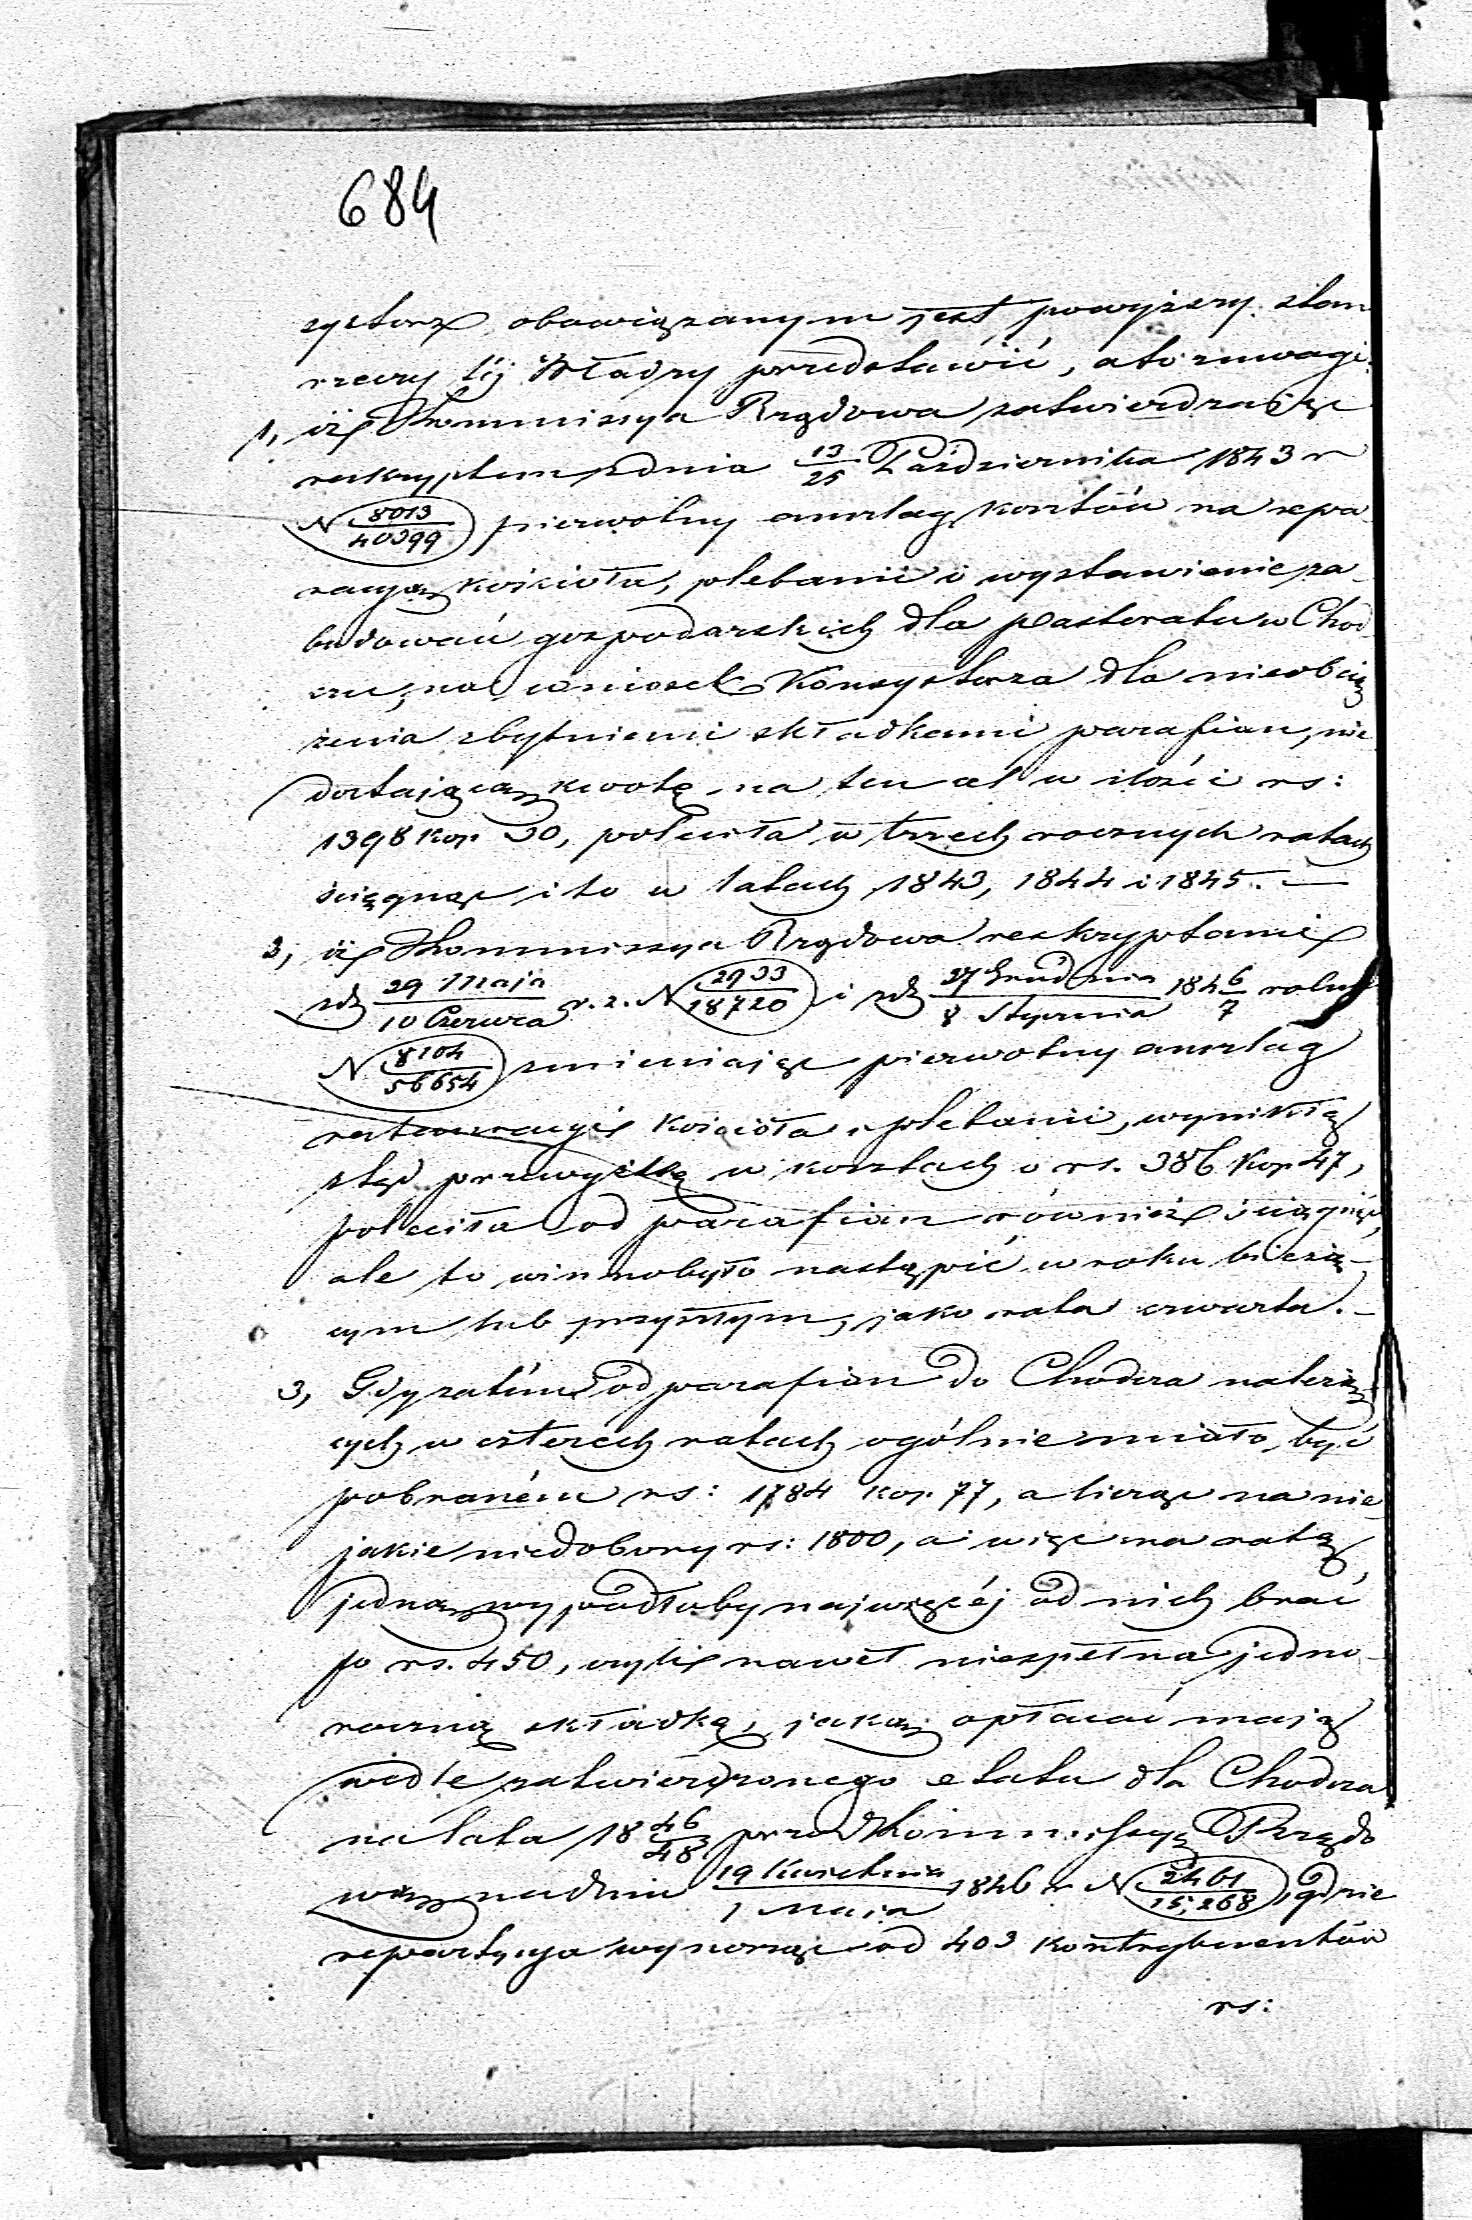 684
systorz obowiązanym jest powyższy stan
rzeczy tej Władzy przedstawić, a to z uwagi:
1, iż Kommissya Rządowa zatwierdzając
reskryptem z dnia 13/25 Października 1843 r
N 8013/40399 pierwotny anszlag kosztów na repa-
racyą kościoła, plebanii i wystawienie za-
budowań gospodarskich dla pastoratu w Chod-
czu, na wniosek Konsystorza dla nieobcią-
żenia zbytniemi składkami parafian, nie
dostającą kwotę na ten cel w ilości rs:
1398 kop 30, poleciła w trzech rocznych ratach
ściągnąć i to w latach 1843, 1844 i 1845. —
2, iż Kommissya Rządowa reskryptami
z d. 29 Maja/10 Czerwca r. z. N 2933/18720 i z d. 27 Grudnia/8 Stycznia 184 6/7 roku
N 8104/56654 zmieniając pierwotny anszlag
restauracyi kościoła i plebanii, wynikłą
ztąd przewyżkę w kosztach o rs. 386 kop 47,
poleciła od parafian również ściągnąć,
ale to winno było nastąpić w roku bieżą-
cym lub przyszłym, jako rata czwarta. —
3, Gdy zatém od parafian do Chodcza należą-
cych w czterech ratach ogólnie miało być
pobraném rs: 1784 kop. 77, a licząc na nie
jakie niedobory rs: 1800, a więc na ratę
jedną wypadłoby najwięcéj od nich brać
po rs. 450, czyli nawet niespełna jedno-
roczną składkę, jaką opłacać mają
wedle zatwierdzonego etatu dla Chodcza
na lata 18 46/48 przez Kommissyą Rządo
wą na dniu 19 Kwietnia/1 Maja 1846 r N 2461/15,268, gdzie
repartycya wynosząc od 403 kontrybuentów
rs: